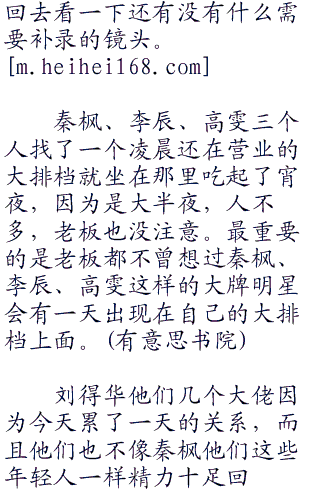 回去看一下还有没有什么需
要补录的镜头。
[m.heihei168.com]
秦枫、李辰、高雯三个
人找了一个凌晨还在营业的
大排档就坐在那里吃起了宵
夜，因为是大半夜，人不
多，老板也没注意。最重要
的是老板都不曾想过秦枫、
李辰、高雯这样的大牌明星
会有一天出现在自己的大排
档上面。(有意思书院)
刘得华他们几个大佬因
为今天累了一天的关系，而
且他们也不像秦枫他们这些
年轻人一样精力十足回